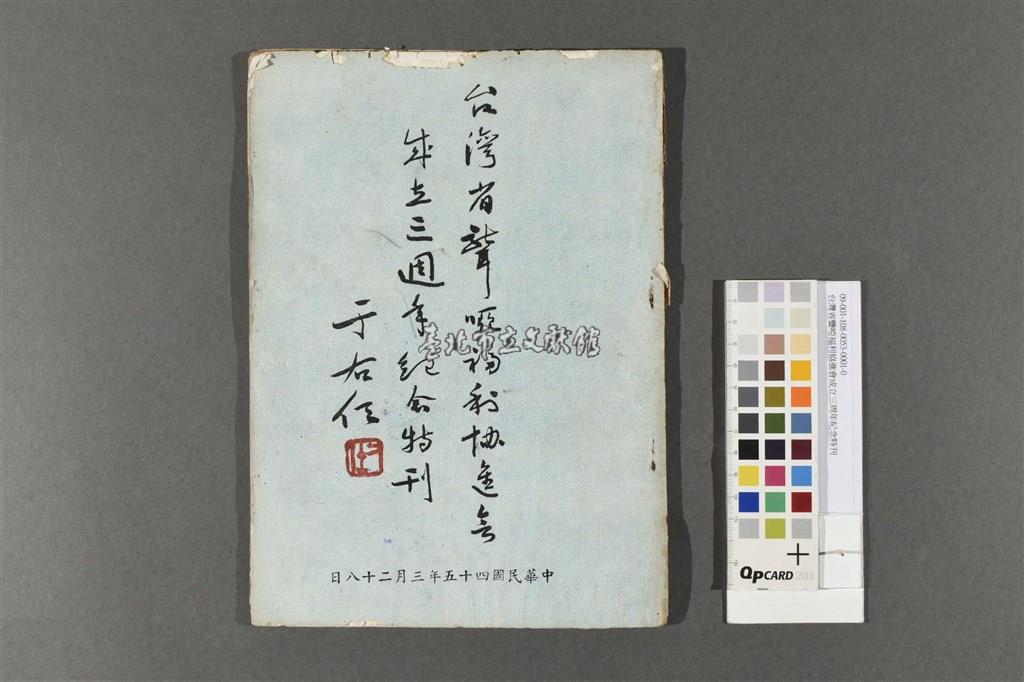 台灣省聾啞福利協進會
成立三週年紀念特刊
于右任
中華民國四十五年三月二十八日
臺北市立文獻館
09-001-108-0053-0001-0
台灣省聾啞福利協進會成立三周年紀念特刊
QPCARD 201